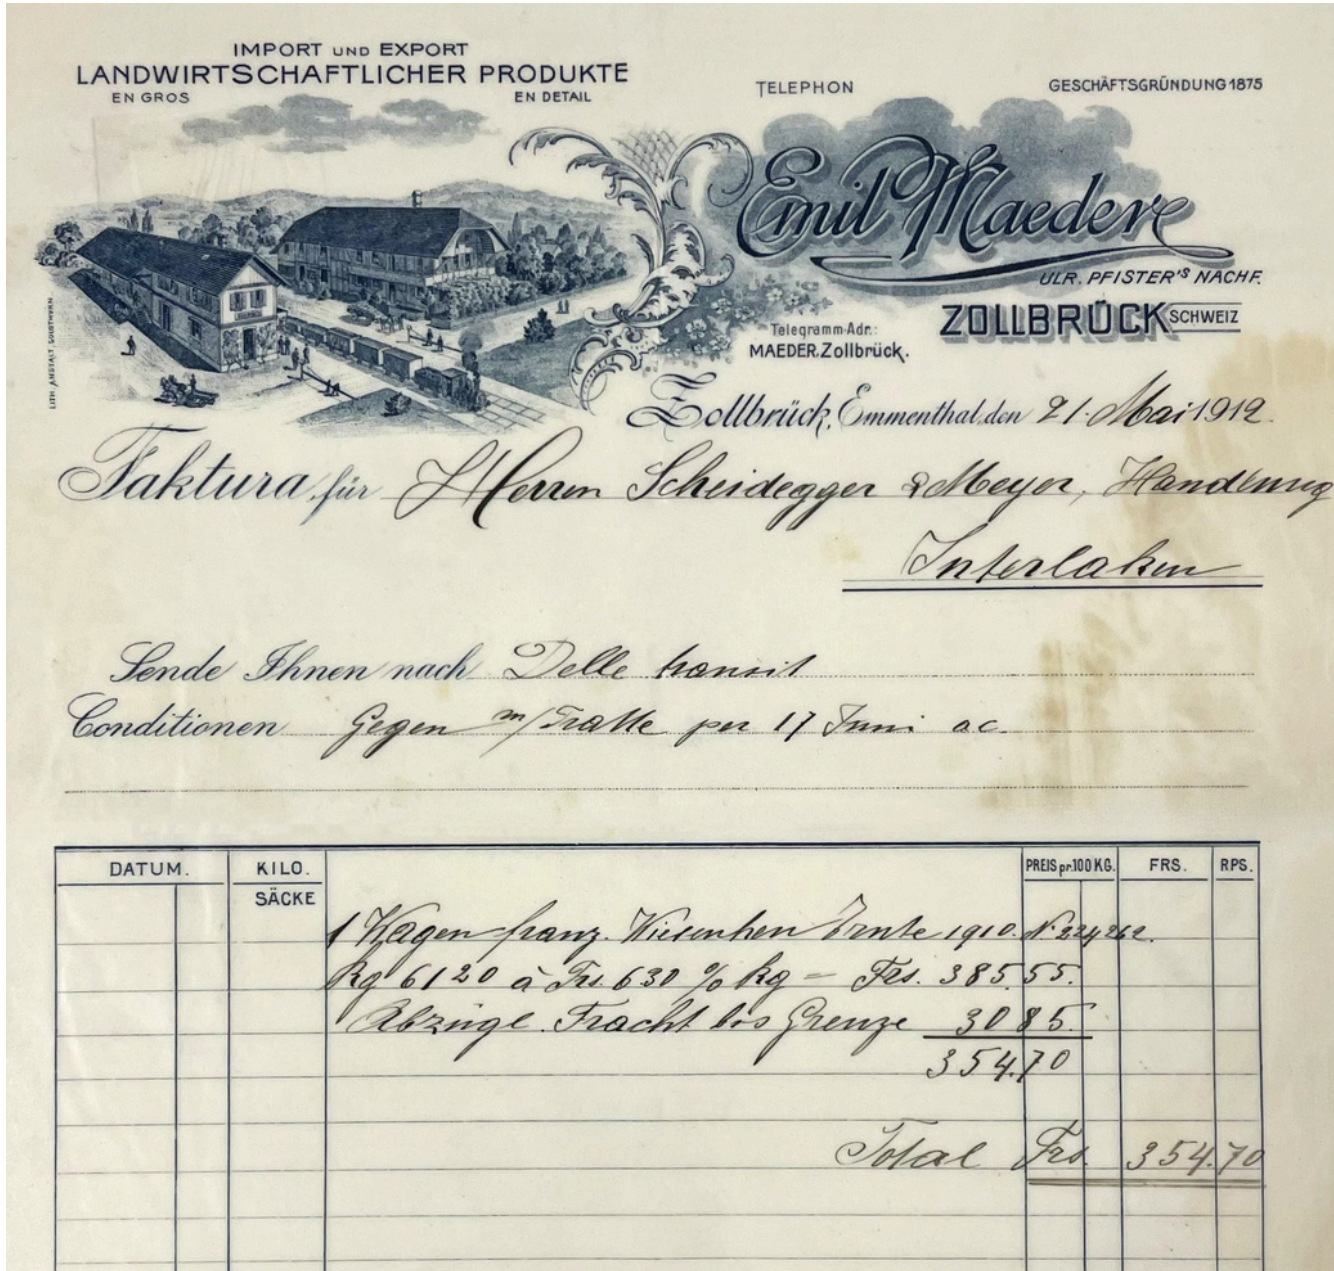 IMPORT UND EXPORT
LANDWIRTSCHAFTLICHER PRODUKTE
EN GROS EN DETAIL
TELEPHON GESCHÄFTSGRÜNDUNG 1875
Emil Maeder
ULR. PFISTER'S NACHF.
ZOLLBRÜCK SCHWEIZ
Telegramm-Adr.:
MAEDER, Zollbrück.
LITH. ANSTALT, SOLOTHURN.
Zollbrück, Emmenthal, den 21. Mai 1912.
Faktura für Herren Scheidegger & Meyer, Handlung
Interlaken
Sende Ihnen nach Delle transit
Conditionen Gegen m/Tratte per 17 Juni ac.
DATUM. KILO. PREIS pr. 100 KG. FRS. RPS.
SÄCKE
1 Wagen franz. Wiesenheu Ernte 1910. No 224262.
Kg 6120 à Frs. 630 % kg = Frs. 385.55.
Abzügl. Fracht bis Grenze 30 85.
354.70
Total Frs. 354.70